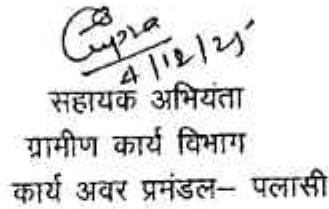 Gupta
4/12/25
सहायक अभियंता
ग्रामीण कार्य विभाग
कार्य अवर प्रमंडल– पलासी